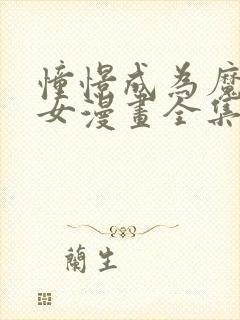 憧憬成為魔
女漫畫全集
蘭生